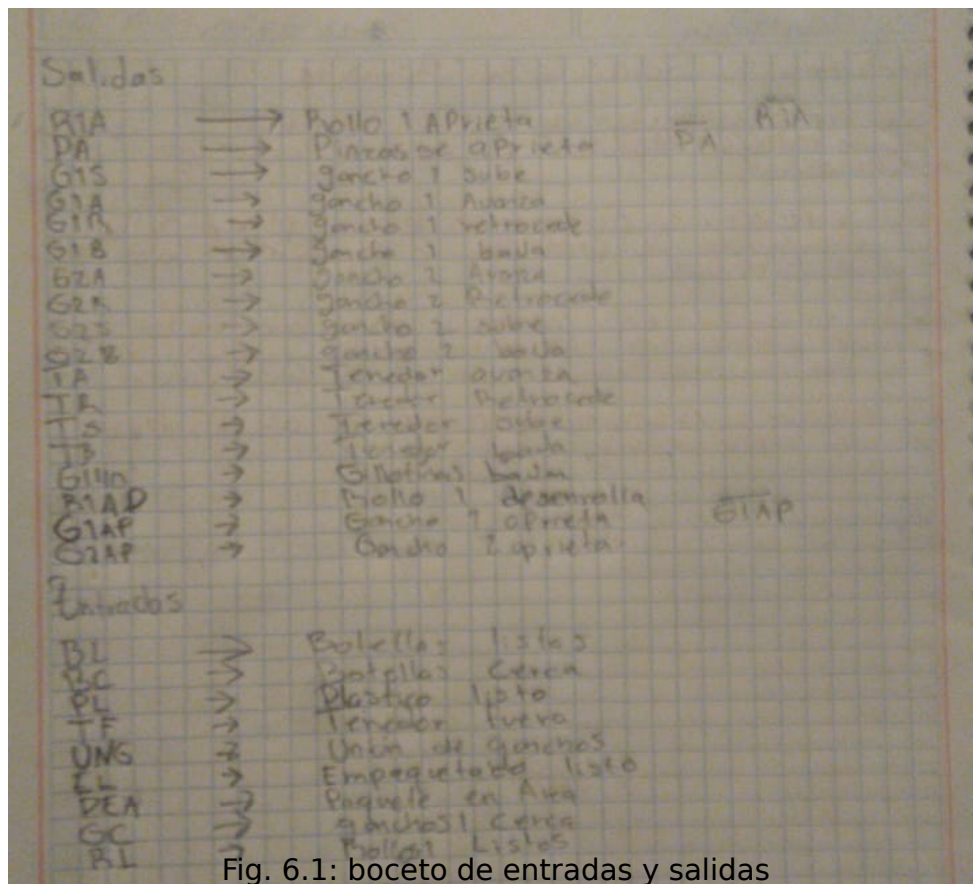 Salidas
R1A → Rollo 1 APrieta PA R1A
PA → Pinzas se aprieta
G1S → gancho 1 sube
G1A → gancho 1 Avanza
G1R → gancho 1 retrocede
G1B → gancho 1 baja
G2A → gancho 2 Avanza
G2R → gancho 2 Retrocede
G2S → gancho 2 sube
G2B → gancho 2 baja
TA → Tenedor avanza
TR → Tenedor Retrocede
TS → Tenedor sube
TB → Tenedor baja
→ baja
R1AD → Rollo 1 desenrolla
G1AP → Gancho 1 aprieta G1AP
G2AP → Gancho 2 aprieta
Entradas
BL → Botellas listas
BC → Botellas Cerca
PL → Plastico listo
TF → Tenedor fuera
UNG → Union de ganchos
EL → Empaquetado listo
→ Paquete en Area
GC → ganchos 1 Cerca
RL → Listos
Fig. 6.1: boceto de entradas y salidas